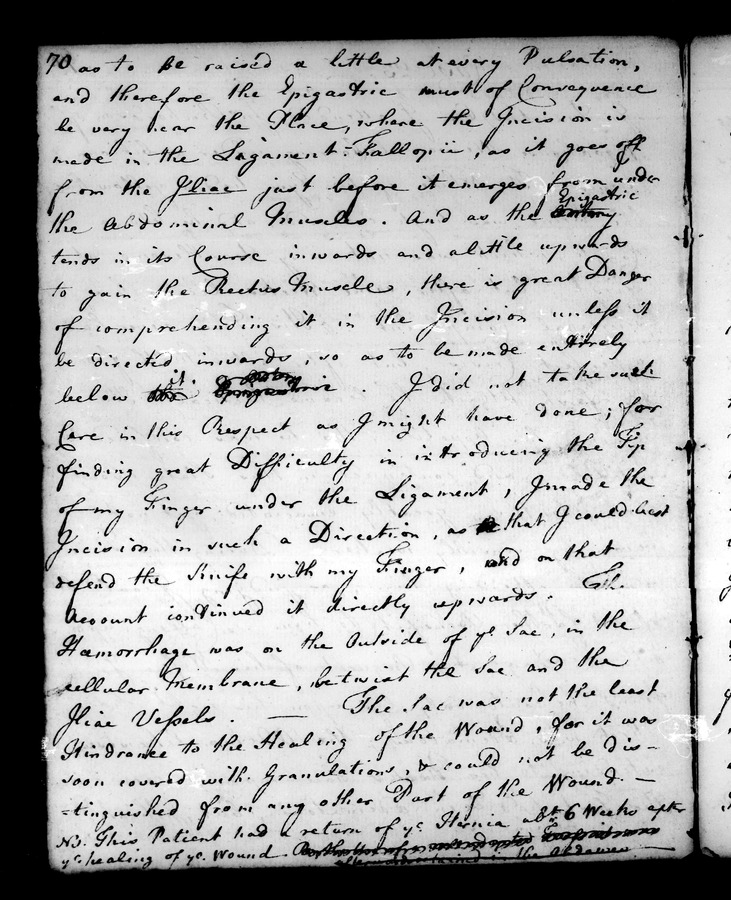 70 as to be raised a little at every Pulsation,
and therefore the Epigastric must of Consequence
be very near the Place, where the Incision is
made in the Ligament: Fallopii, as it goes off
from the Iliac just before it emerges from under
the abdominal Muscles. And as the Epigastric
tends in its Course inwards and a little upwards
to gain the Rectus Muscle, there is great Danger
of comprehending it in the Incision unless it
be directed inwards, so as to be made entirely
below it. I did not take such
Care in this Respect as I might have done; for
finding great Difficulty in introducing the Tip
of my Finger under the Ligament, I made the
Incision in such a Direction, as that I could best
defend the Knife with my Finger, and on that
Account continued it directly upwards. The
Hæmorrhage was on the Outside of ye Sac, in the
cellular Membrane, betwixt the Sac and the
Iliac Vessels. — The Sac was not the least
Hindrance to the Healing of the Wound, for it was
soon covered with Granulations, & could not be dis-
-tinguished from any other Part of the Wound. —
NB. This Patient had a return of ye Hernia abt 6 Weeks after
ye healing of ye Wound